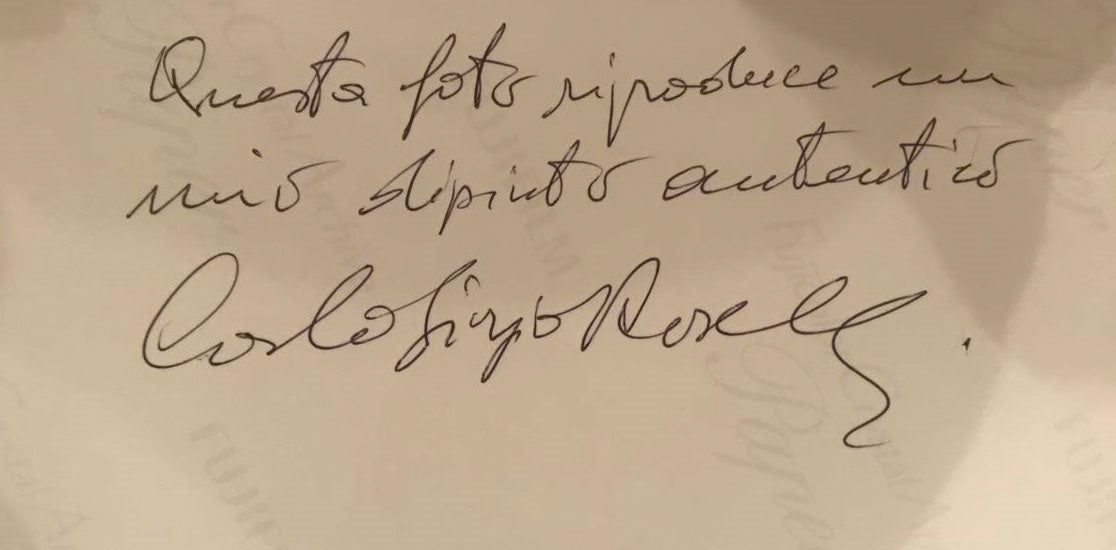 Questa foto riproduce un
mio dipinto autentico
Carlo